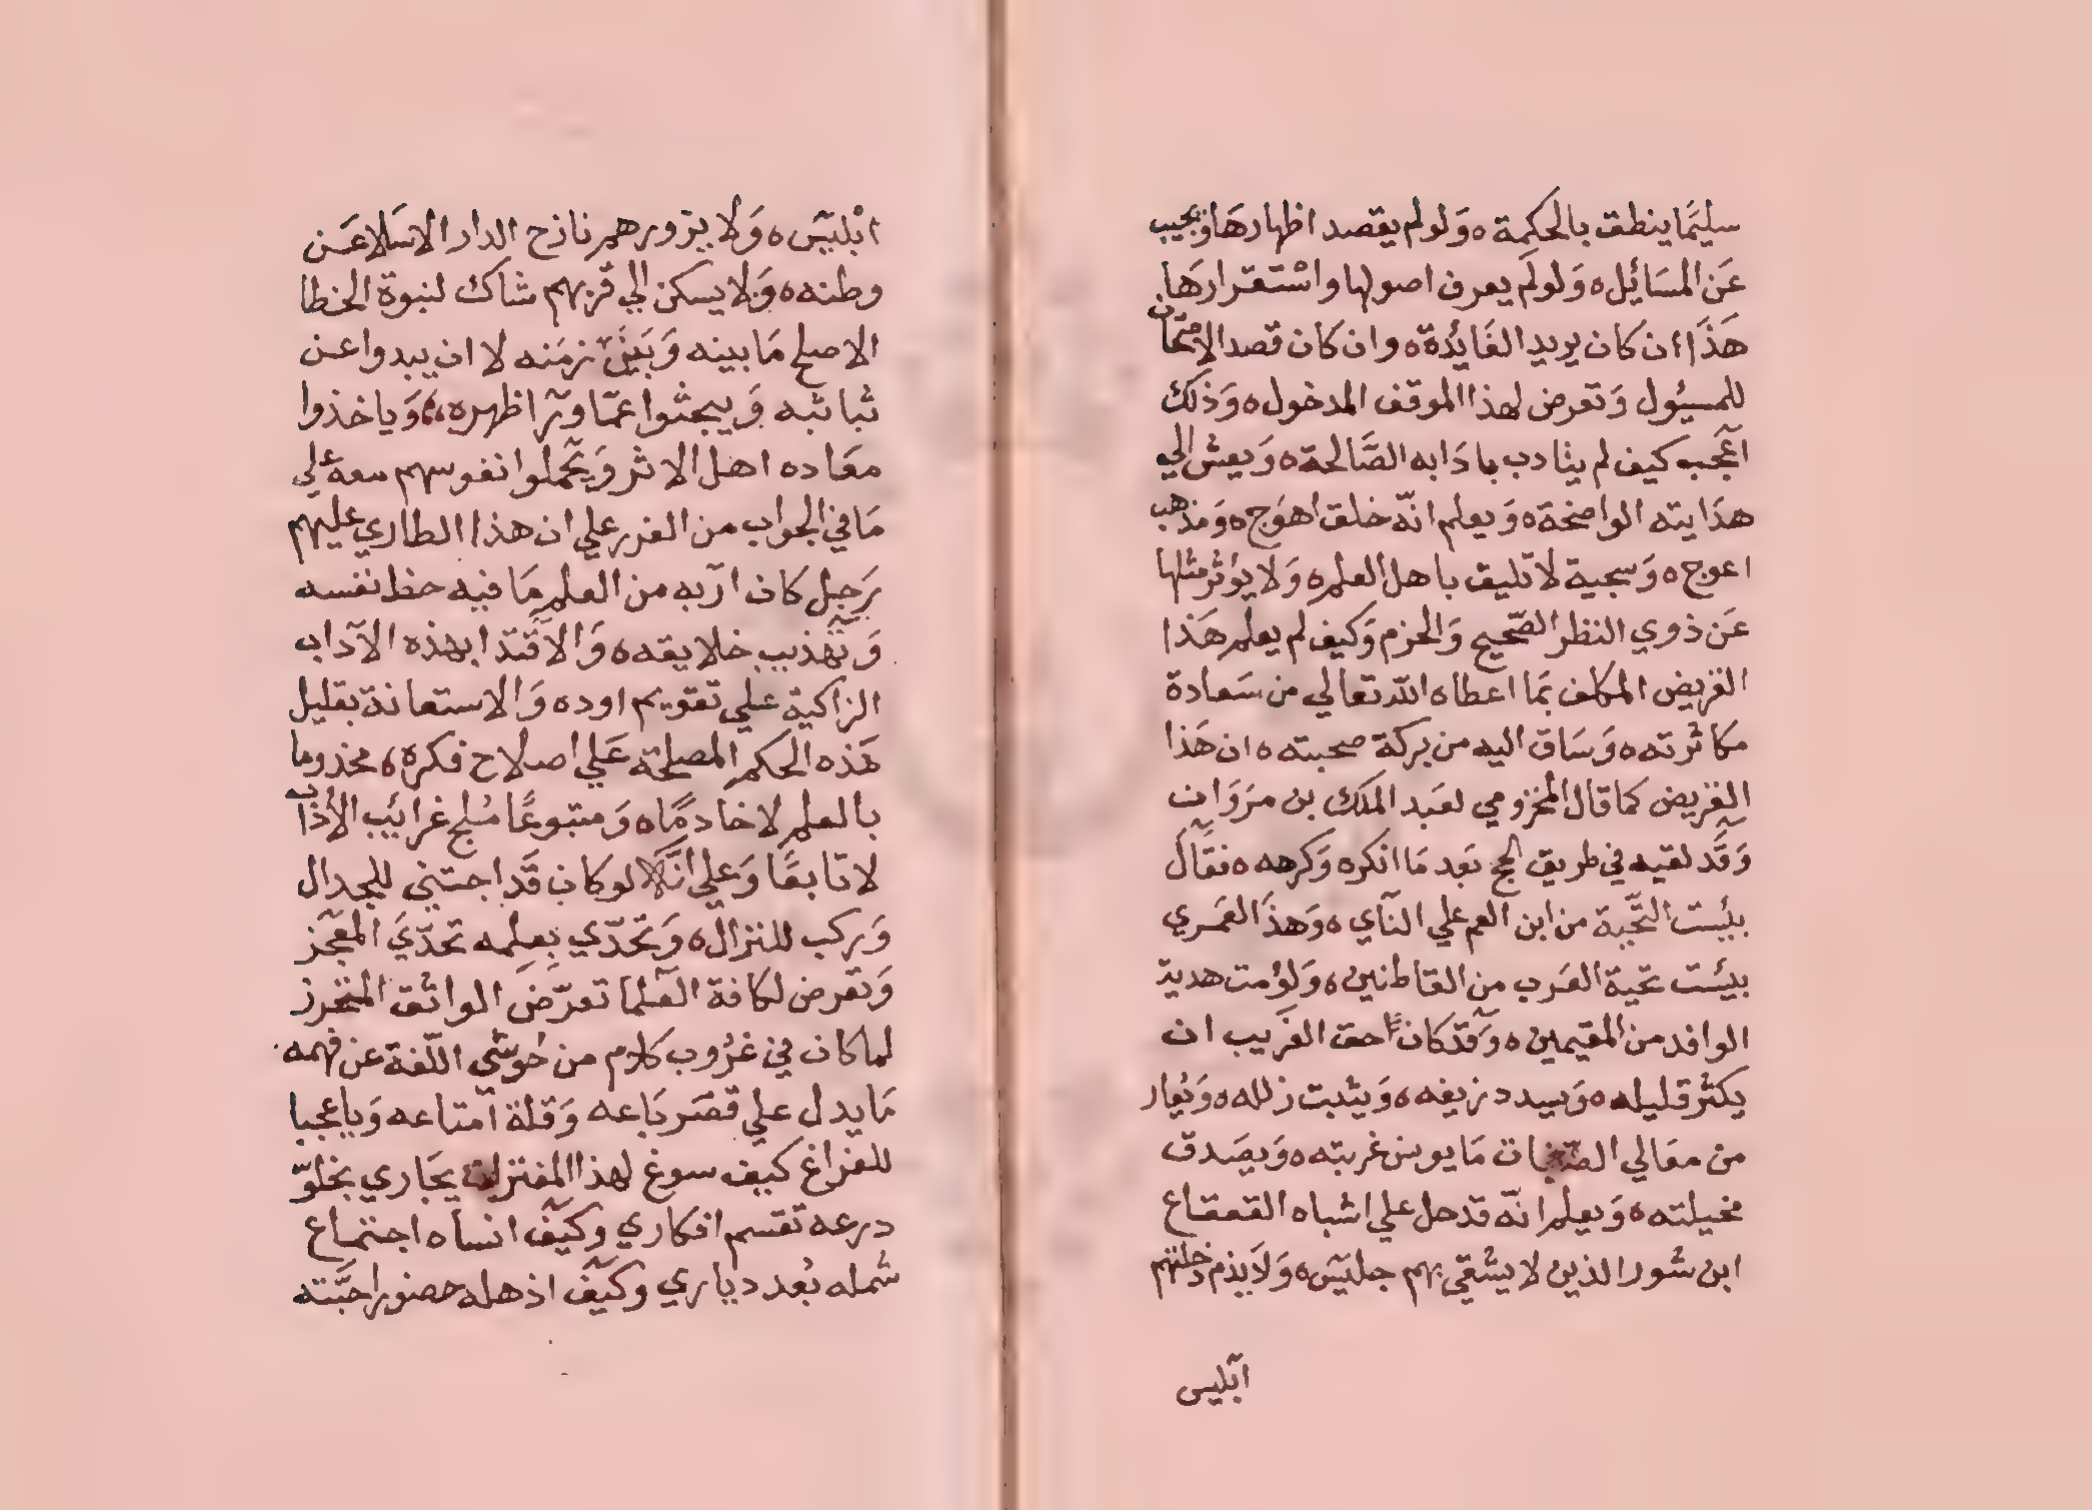 سليمًا ينطق بالحكمة ه وَلو لم يقصد اظهارهَا ويجيب
عَن المسَائِل ه وَلو لم يعرف اصولها واسْتقرارهَا
هَذَا ان كان يريد الفَائِدة ه وان كان قصد الامتحان
للمسئول وَتعرض لهذا الموقف المدخول ه وَذلك
اعجب كيف لم يتادب بادَابه الصَّالحة ه وَيعش الي
هدَايته الواضحة ه وَيعلم انّه خلق اهوَج ه وَمذهب
اعوج ه وَسجية لا تليق باهل العلم ه وَلا يؤثر مثلها
عَن ذوي النظر الصّحيح وَالحزم وَكيف لم يعلم هَذا
الغريض المكلف بمَا اعطاه الله تعالي من سَعادة
مكاثرته ه وَسَاق اليه من بركة صحبته ه ان هَذا
الغريض كما قال المخزومي لعَبد الملك بن مروَان
وَقَد لقيه في طريق الحج بعد مَا انكره وَكرهه ه فقال
بئست التّحية من ابن العم علي النّاي ه وَهذَا لعمري
بئست تحية العَرب من القاطنين ه وَلؤمت هدية
الوافد من المقيمين ه وَقد كان احق الغَريب ان
يكثر قليله ه وَيسدد زيفه ه وَيثبت زلله ه وَيُعار
من معَالي الصّفات مَا يونس غربته ه وَيصَدق
مخيلته ه وَيعلم انّه قد حل علي اشباه القعقاع
ابن شور الذين لا يشقي بهم جليس ه وَلا يذم دخلتهم
ابليس
ابْليس ه وَلا يزورهم نازح الدار الا سَلا عَن
وطنه ه وَلا يسكن الي قربهم شاك لنبوة الخطا
الا صلح مَا بينه وَبَين زمَنه لا ان يبدوا عن
ثباتبه وَيبحثوا عمّا ورا اظهره ه وَياخذوا
معَاده اهل الاثر وَيحملوا نفوسهم سعة لي
مَا في الجواب من الغرر علي ان هذا الطاري عليهم
رَجل كان اربه من العلم مَا فيه حظ نفسه
وَتهذيب خلايقه ه وَالاقتدا بهذه الاداب
الزاكية علي تقويم اوده وَالاستعانة بقليل
هَذه الحكم المصلحة عَلي اصلاح فكره ه مخدوما
بالعلم لا خادمًا ه وَمتبوعًا مُلح غرائب الاداب
لا تابعًا وَعلي انّه لو كان قَد اجتني للجدال
وَركب للنزال ه وَتحدّي بعلمه تحدّيَ المعجز
وَتعرض لكافة العلما تعرّض الواثق المتحرز
لما كان في غرُوب كلام من حُوشي اللّغة عن فهمه
مَا يدل علي قصَر بَاعه وَقلة امتاعه وَيا عجبا
للفراغ كيف سوغ لهذا المغتر ان يجَاري بخلوّ
درعه تقسم افكاري وكيف انساه اجتماع
شمله بُعد دياري وكيف اذهله حضور احبّته